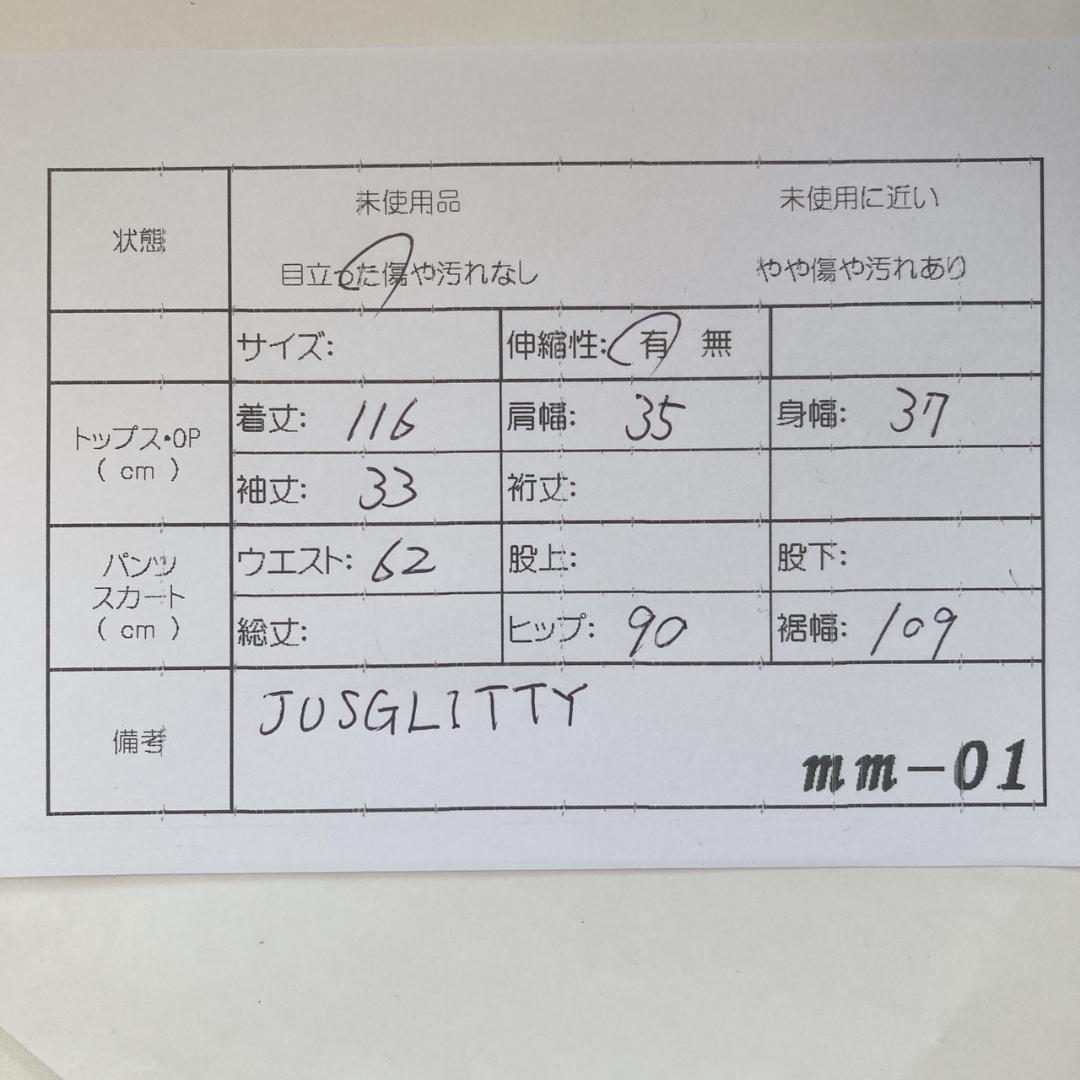 状態 未使用品 未使用に近い
目立った傷や汚れなし やや傷や汚れあり
サイズ: 伸縮性: 有 無
トップス・OP
( cm )
着丈: 116 肩幅: 35 身幅: 37
袖丈: 33 裄丈:
パンツ
スカート
( cm )
ウエスト: 62 股上: 股下:
総丈: ヒップ: 90 裾幅: 109
備考 JUSGLITTY
mm-01